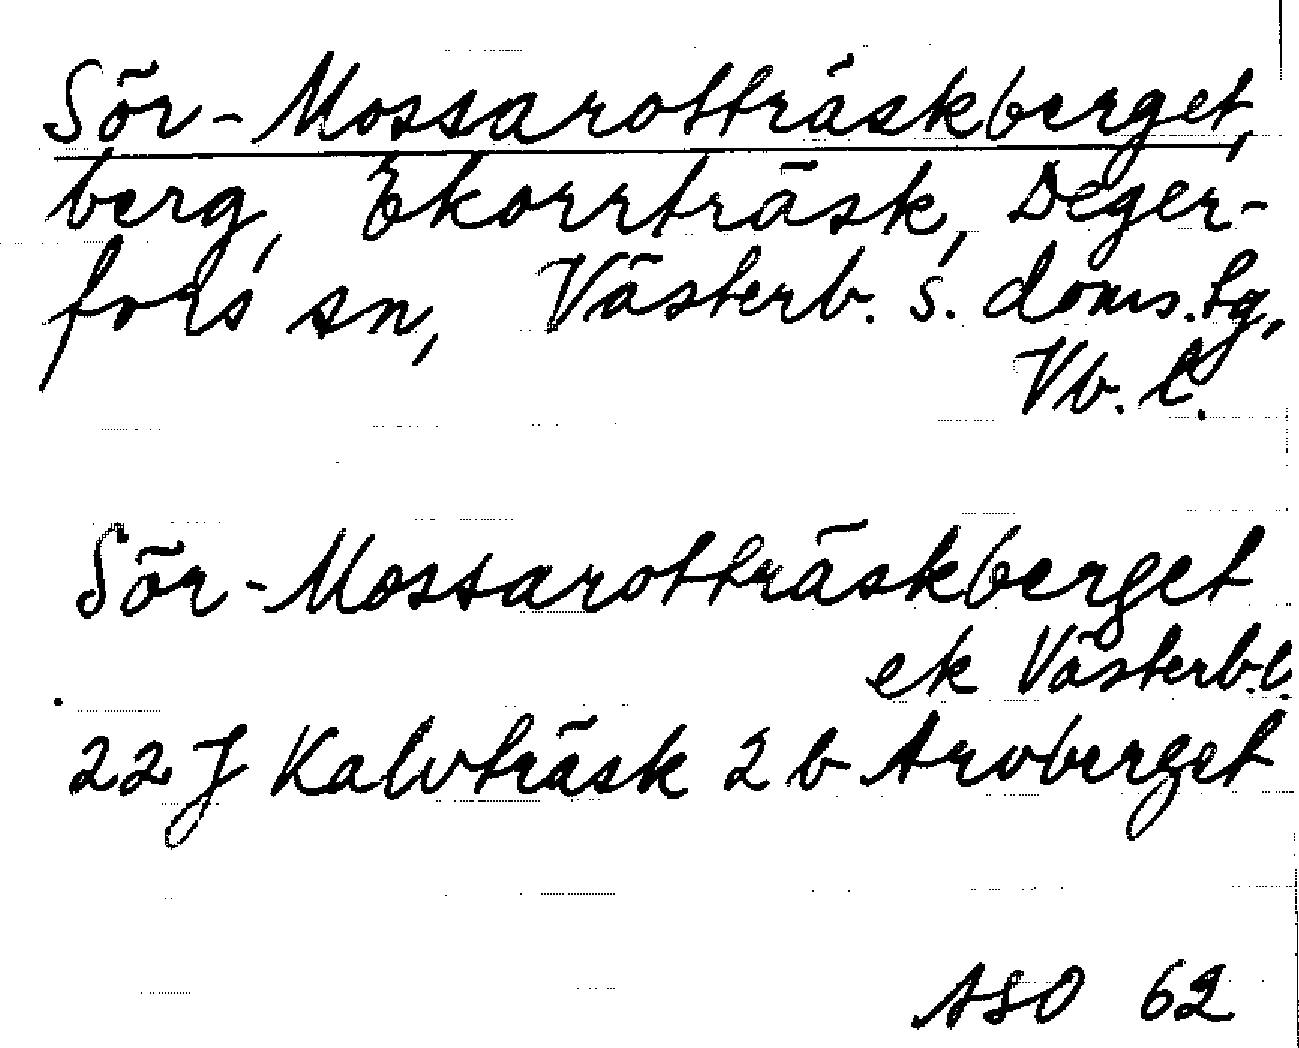 Sör-Mossarotträskberget,
berg, Ekorrträsk, Deger-
fors sn, Västerb. s. doms.tg,
Vb. l.
Sör-Mossarotträskberget
ek Västerb.l.
22 J Kalvträsk 2 b Arvberget
ASO 62